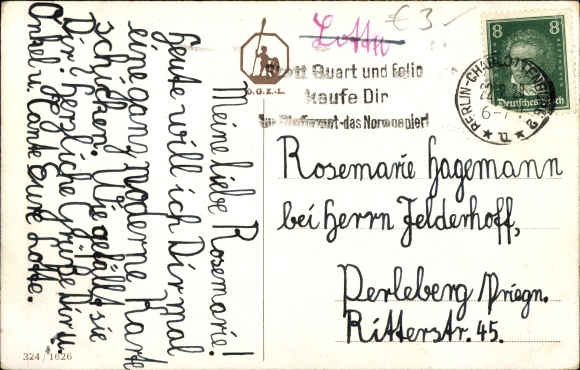 Meine liebe Rosemarie!
Heute will ich Dir mal
eine ganz moderne Karte
schicken. Wie gefällt sie
Dir? Herzliche Grüße Dir u.
Onkel u. Tante Eure Lotte.
324/1626
O.G.Z.-L.
Lotte
€ 3-
Statt Quart und Folio
kaufe Dir
das Normpapier!
8 8
Deutsches Reich
BERLIN-CHARLOTTENBURG 2
6-7
* u *
Rosemarie Hagemann
bei Herrn Felderhoff,
Perleberg Priegn.
Ritterstr. 45.